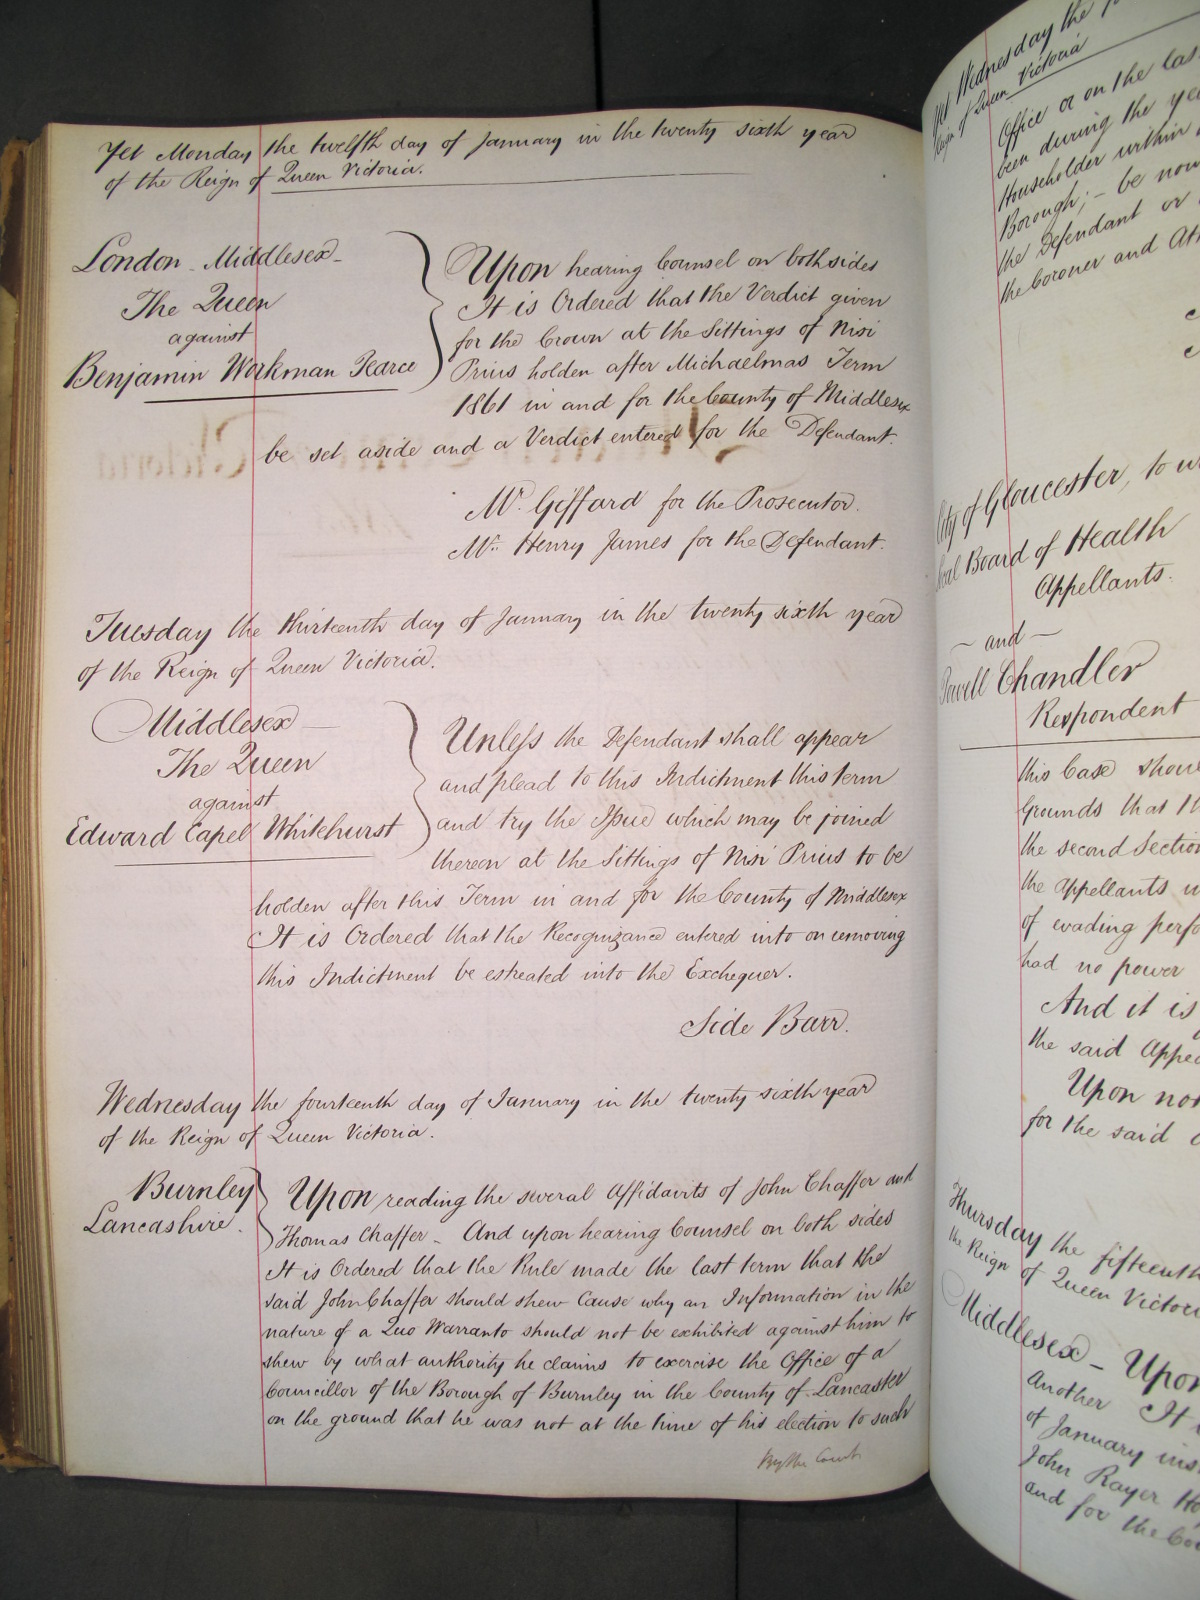 Yet Monday the twelfth day of January in the twenty sixth year
of the Reign of Queen Victoria.
London Middlesex
The Queen
against
Benjamin Workman Pearce
Upon hearing Counsel on both sides
It is Ordered that the Verdict given
for the Crown at the Sittings of Nisi
Prius holden after Michaelmas Term
1861 in and for the County of Middlesex
be set aside and a Verdict entered for the Defendant.
Mr. Giffard for the Prosecutor.
Mr. Henry James for the Defendant.
Tuesday the thirteenth day of January in the twenty sixth year
of the Reign of Queen Victoria.
Middlesex
The Queen
against
Edward Capel Whitehurst
Unless the Defendant shall appear
and plead to this Indictment this term
and try the Issue which may be joined
thereon at the Sittings of Nisi Prius to be
holden after this Term in and for the County of Middlesex
It is Ordered that the Recognizance entered into on removing
this Indictment be estreated into the Exchequer.
Side Barr.
Wednesday the fourteenth day of January in the twenty sixth year
of the Reign of Queen Victoria.
Burnley
Lancashire.
Upon reading the several Affidavits of John Chaffer and
Thomas Chaffer - And upon hearing Counsel on both sides
It is Ordered that the Rule made the last term that the
said John Chaffer should shew Cause why an Information in the
nature of a Quo Warranto should not be exhibited against him to
shew by what authority he claims to exercise the Office of a
Councillor of the Borough of Burnley in the County of Lancaster
on the ground that he was not at the time of his election to such
By the Court
Yet Wednesday the
Reign of Queen Victoria
Office or on the las
been during the ye
Householder within
Borough; - be now
the Defendant or
the Coroner and At
City of Gloucester, to w
Local Board of Health
Appellants.
- and -
Chandler
Respondent
this Case shou
Grounds that th
the second Section
the appellants w
of evading perfo
had no power
And it is
the said Appe
Upon no
for the said
Thursday the fifteenth
the Reign of Queen Victori
Middlesex - Upon
Another It
of January ins
John Rayer Ho
and for the Co